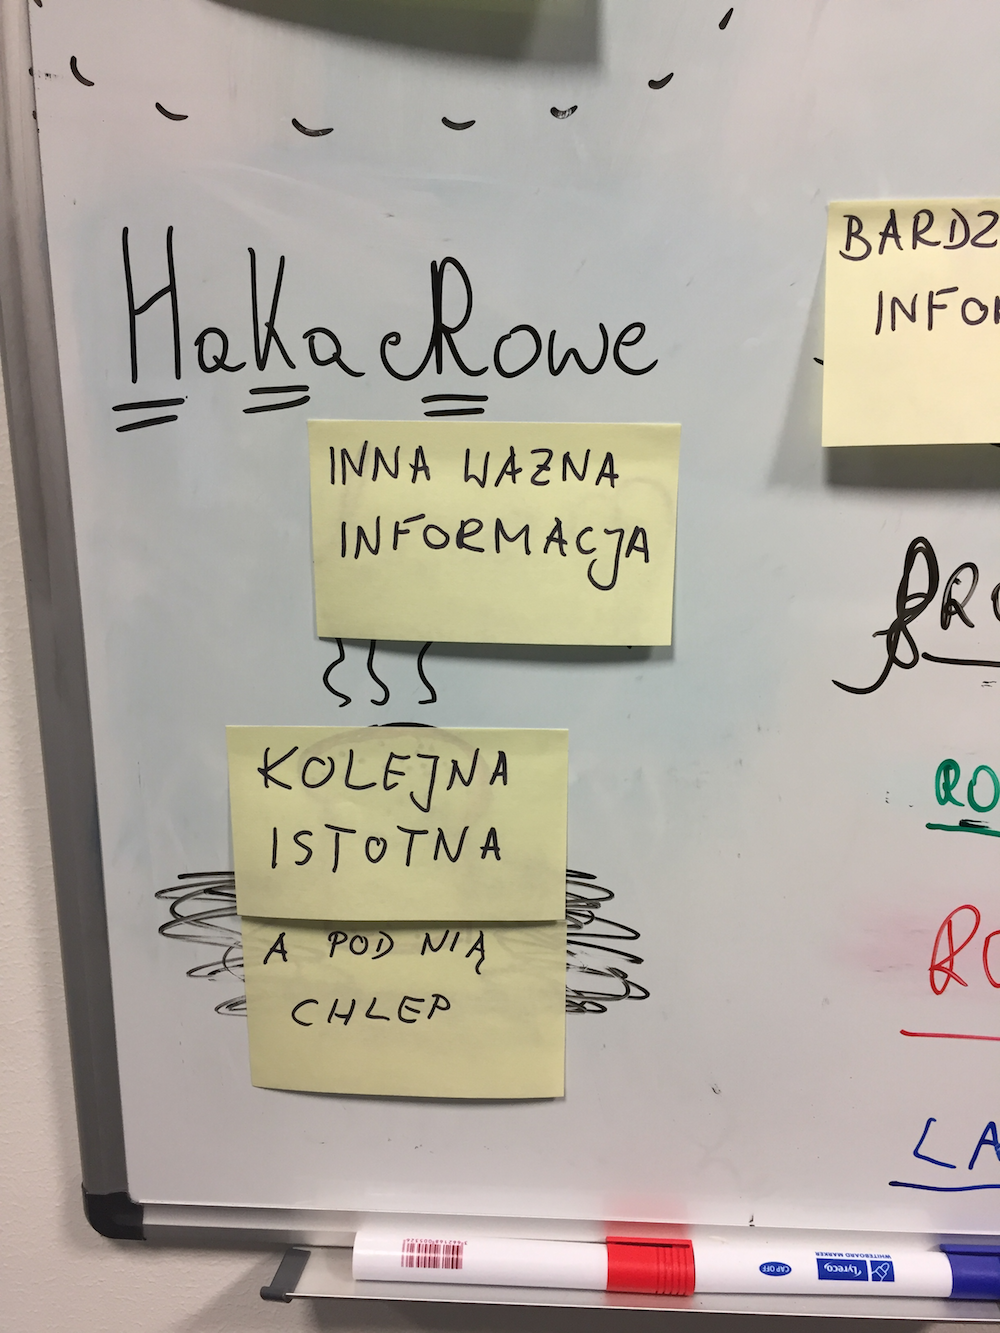 HaKacRowe
INNA WAZNA
INFORMACJA
KOLEJNA
ISTOTNA
A POD NIĄ
CHLEP
BARDZ
INFOR
RO
RO
LA
3662168005326
CAP OFF
Lyreco
WHITEBOARD MARKER